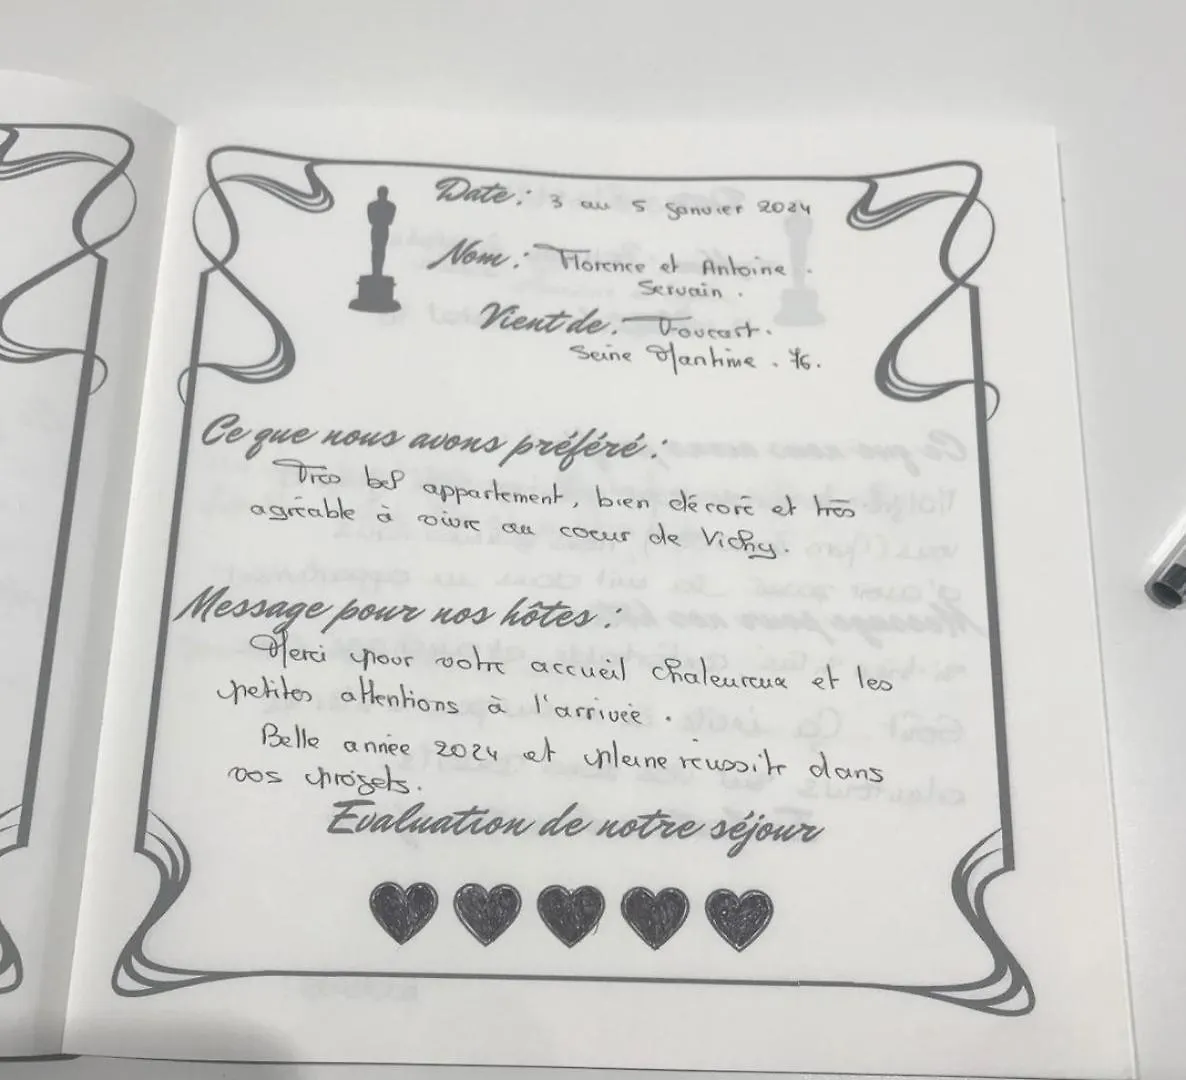 Date : 3 au 5 janvier 2024
Nom : Florence et Antoine
Servain.
Vient de :
Seine Maritime . 76.
Ce que nous avons préféré :
Très bel appartement, bien décoré et très
agréable à vivre au coeur de Vichy.
Message pour nos hôtes :
Merci pour votre accueil chaleureux et les
petites attentions à l'arrivée .
Belle année 2024 et pleine réussite dans
vos projets.
Evaluation de notre séjour